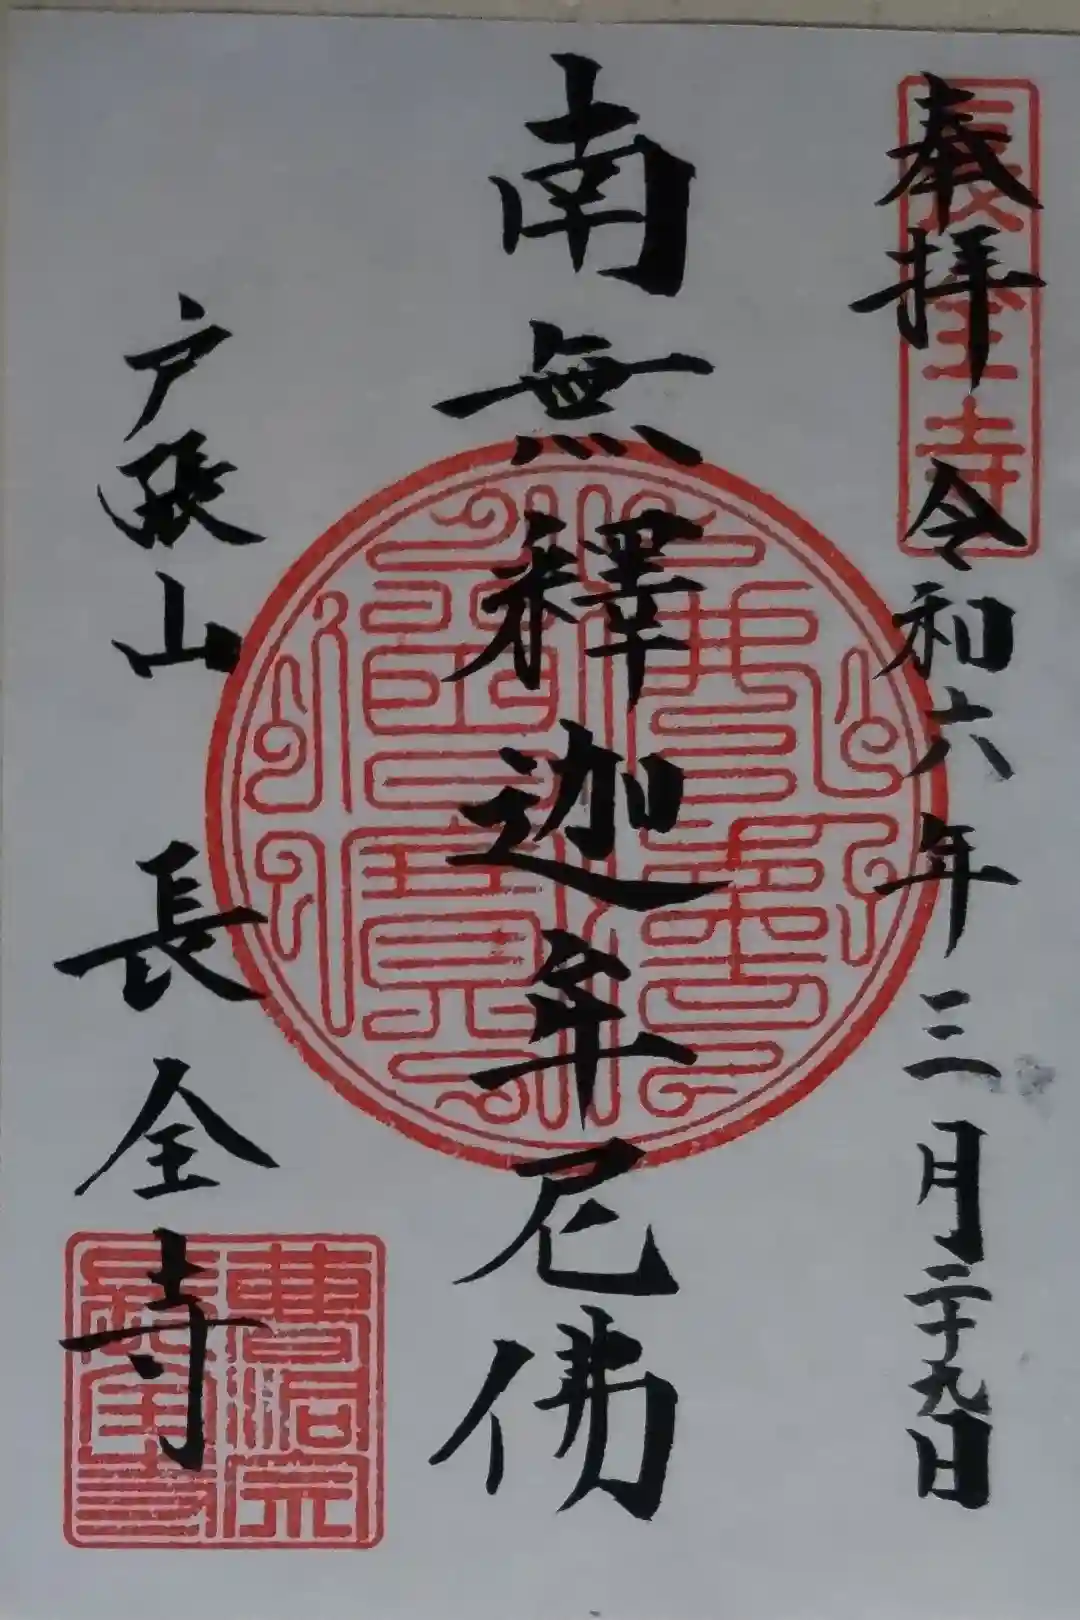 奉拝 令和六年三月二十九日
長全寺
南無釋迦牟尼佛
佛法僧寶
戸張山 長全寺
曹洞宗
長全寺